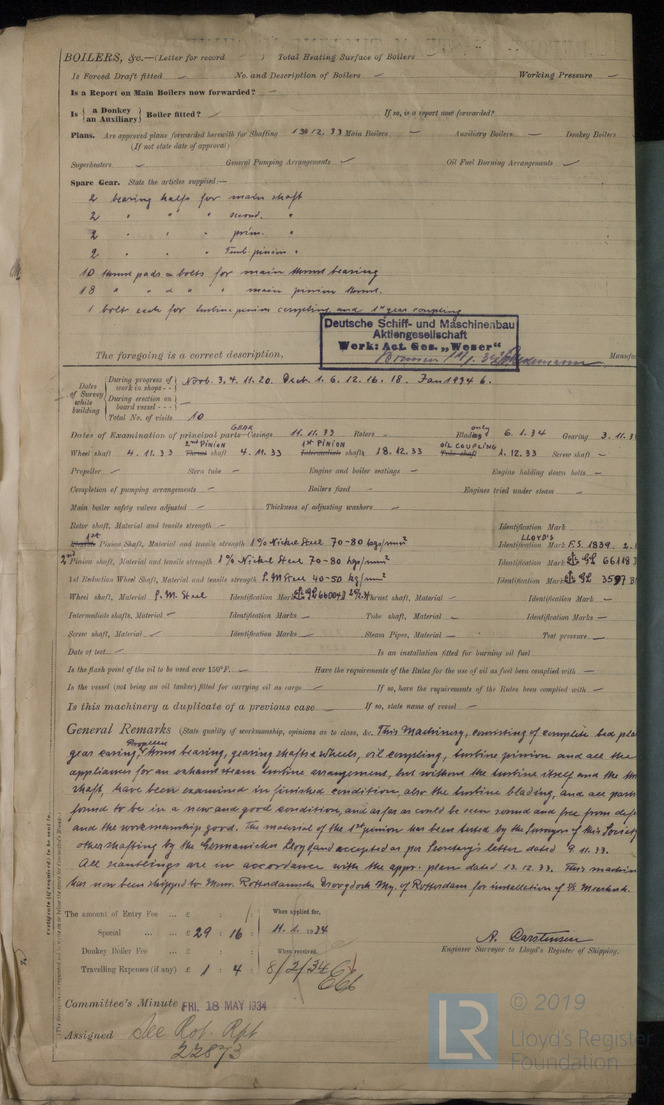 BOILERS, &c.—(Letter for record ) Total Heating Surface of Boilers —
Is Forced Draft fitted — No. and Description of Boilers — Working Pressure —
Is a Report on Main Boilers now forwarded? —
Is { a Donkey / an Auxiliary } Boiler fitted? If so, is a report now forwarded?
Plans. Are approved plans forwarded herewith for Shafting 13.12.33 Main Boilers — Auxiliary Boilers — Donkey Boilers
(If not state date of approval)
Superheaters — General Pumping Arrangements — Oil Fuel Burning Arrangements —
Spare Gear. State the articles supplied:—
2 bearing halfs for main shaft
2 " " " second. "
2 " " " prim. "
2 " " " Turb. pinion "
10 thrust pads & bolts for main thrust bearing
18 " " & " " main pinion thrust.
1 bolt each for turbine pinion coupling and 1st gear coupling
Deutsche Schiff- und Maschinenbau
Aktiengesellschaft
Werk: Act. Ges. „Weser"
The foregoing is a correct description, Bremen Manufa
Dates of Survey while building
During progress of work in shops - - Novb. 3. 4. 11. 20. Decb. 1. 6. 12. 16. 18. Jan 1934 6.
During erection on board vessel - - - —
Total No. of visits 10
Dates of Examination of principal parts—Casings GEAR 11.11.33 Rotors — Blading only 6.1.34 Gearing 3.11.3
Wheel shaft 4.11.33 Thrust shaft 2nd PINION 4.11.33 Intermediate shafts 1st PINION 18.12.33 Tube shaft OIL COUPLING 1.12.33 Screw shaft —
Propeller — Stern tube — Engine and boiler seatings — Engine holding down bolts —
Completion of pumping arrangements — Boilers fixed — Engines tried under steam —
Main boiler safety valves adjusted — Thickness of adjusting washers —
Rotor shaft, Material and tensile strength — Identification Mark
1st Pinion Shaft, Material and tensile strength 1% Nickel Steel 70-80 kgs/mm² Identification Mark LLOYD'S F.S. 1839. 2.
2nd Pinion shaft, Material and tensile strength 1% Nickel Steel 70-80 kgs/mm² Identification Mark GL 66118
1st Reduction Wheel Shaft, Material and tensile strength S.M Steel 40-50 kg/mm² Identification Mark GL 3597
Wheel shaft, Material S.M. Steel Identification Mark GL 66004 Thrust shaft, Material — Identification Mark —
Intermediate shafts, Material — Identification Marks — Tube shaft, Material — Identification Marks —
Screw shaft, Material — Identification Marks — Steam Pipes, Material — Test pressure —
Date of test — Is an installation fitted for burning oil fuel
Is the flash point of the oil to be used over 150°F. — Have the requirements of the Rules for the use of oil as fuel been complied with —
Is the vessel (not being an oil tanker) fitted for carrying oil as cargo — If so, have the requirements of the Rules been complied with —
Is this machinery a duplicate of a previous case — If so, state name of vessel —
General Remarks (State quality of workmanship, opinions as to class, &c. This Machinery, consisting of complete bed pla
gear casing, Propeller thrust bearing, gearing shafts & wheels, oil coupling, turbine pinion and all the
appliances for an exhaust steam turbine arrangement, but without the turbine itself and the thr
shaft, have been examined in finished condition, also the turbine blading, and all parts
found to be in a new and good condition, and as far as could be seen sound and free from def
and the workmanship good. The material of the 1st pinion has been tested by the Surveyors of this Society
other shafting by the Germanischer Lloyd and accepted as per Secretary's letter dated 9.11.33.
All scantlings are in accordance with the appr. plan dated 13.12.33. This machin
has now been shipped to Messrs. Rotterdamsche Droogdock My. of Rotterdam for installation of
The amount of Entry Fee ... £ : : When applied for,
Special ... ... £ 29 : 16 : 11. 1. 1934
Donkey Boiler Fee ... £ : : When received,
Travelling Expenses (if any) £ 1 : 4 : 8/2/34
A. Carstensen
Engineer Surveyor to Lloyd's Register of Shipping.
Committee's Minute FRI. 18 MAY 1934
Assigned See Rot. Rpt
22873
LR
© 2019
Lloyd's Register
Foundation